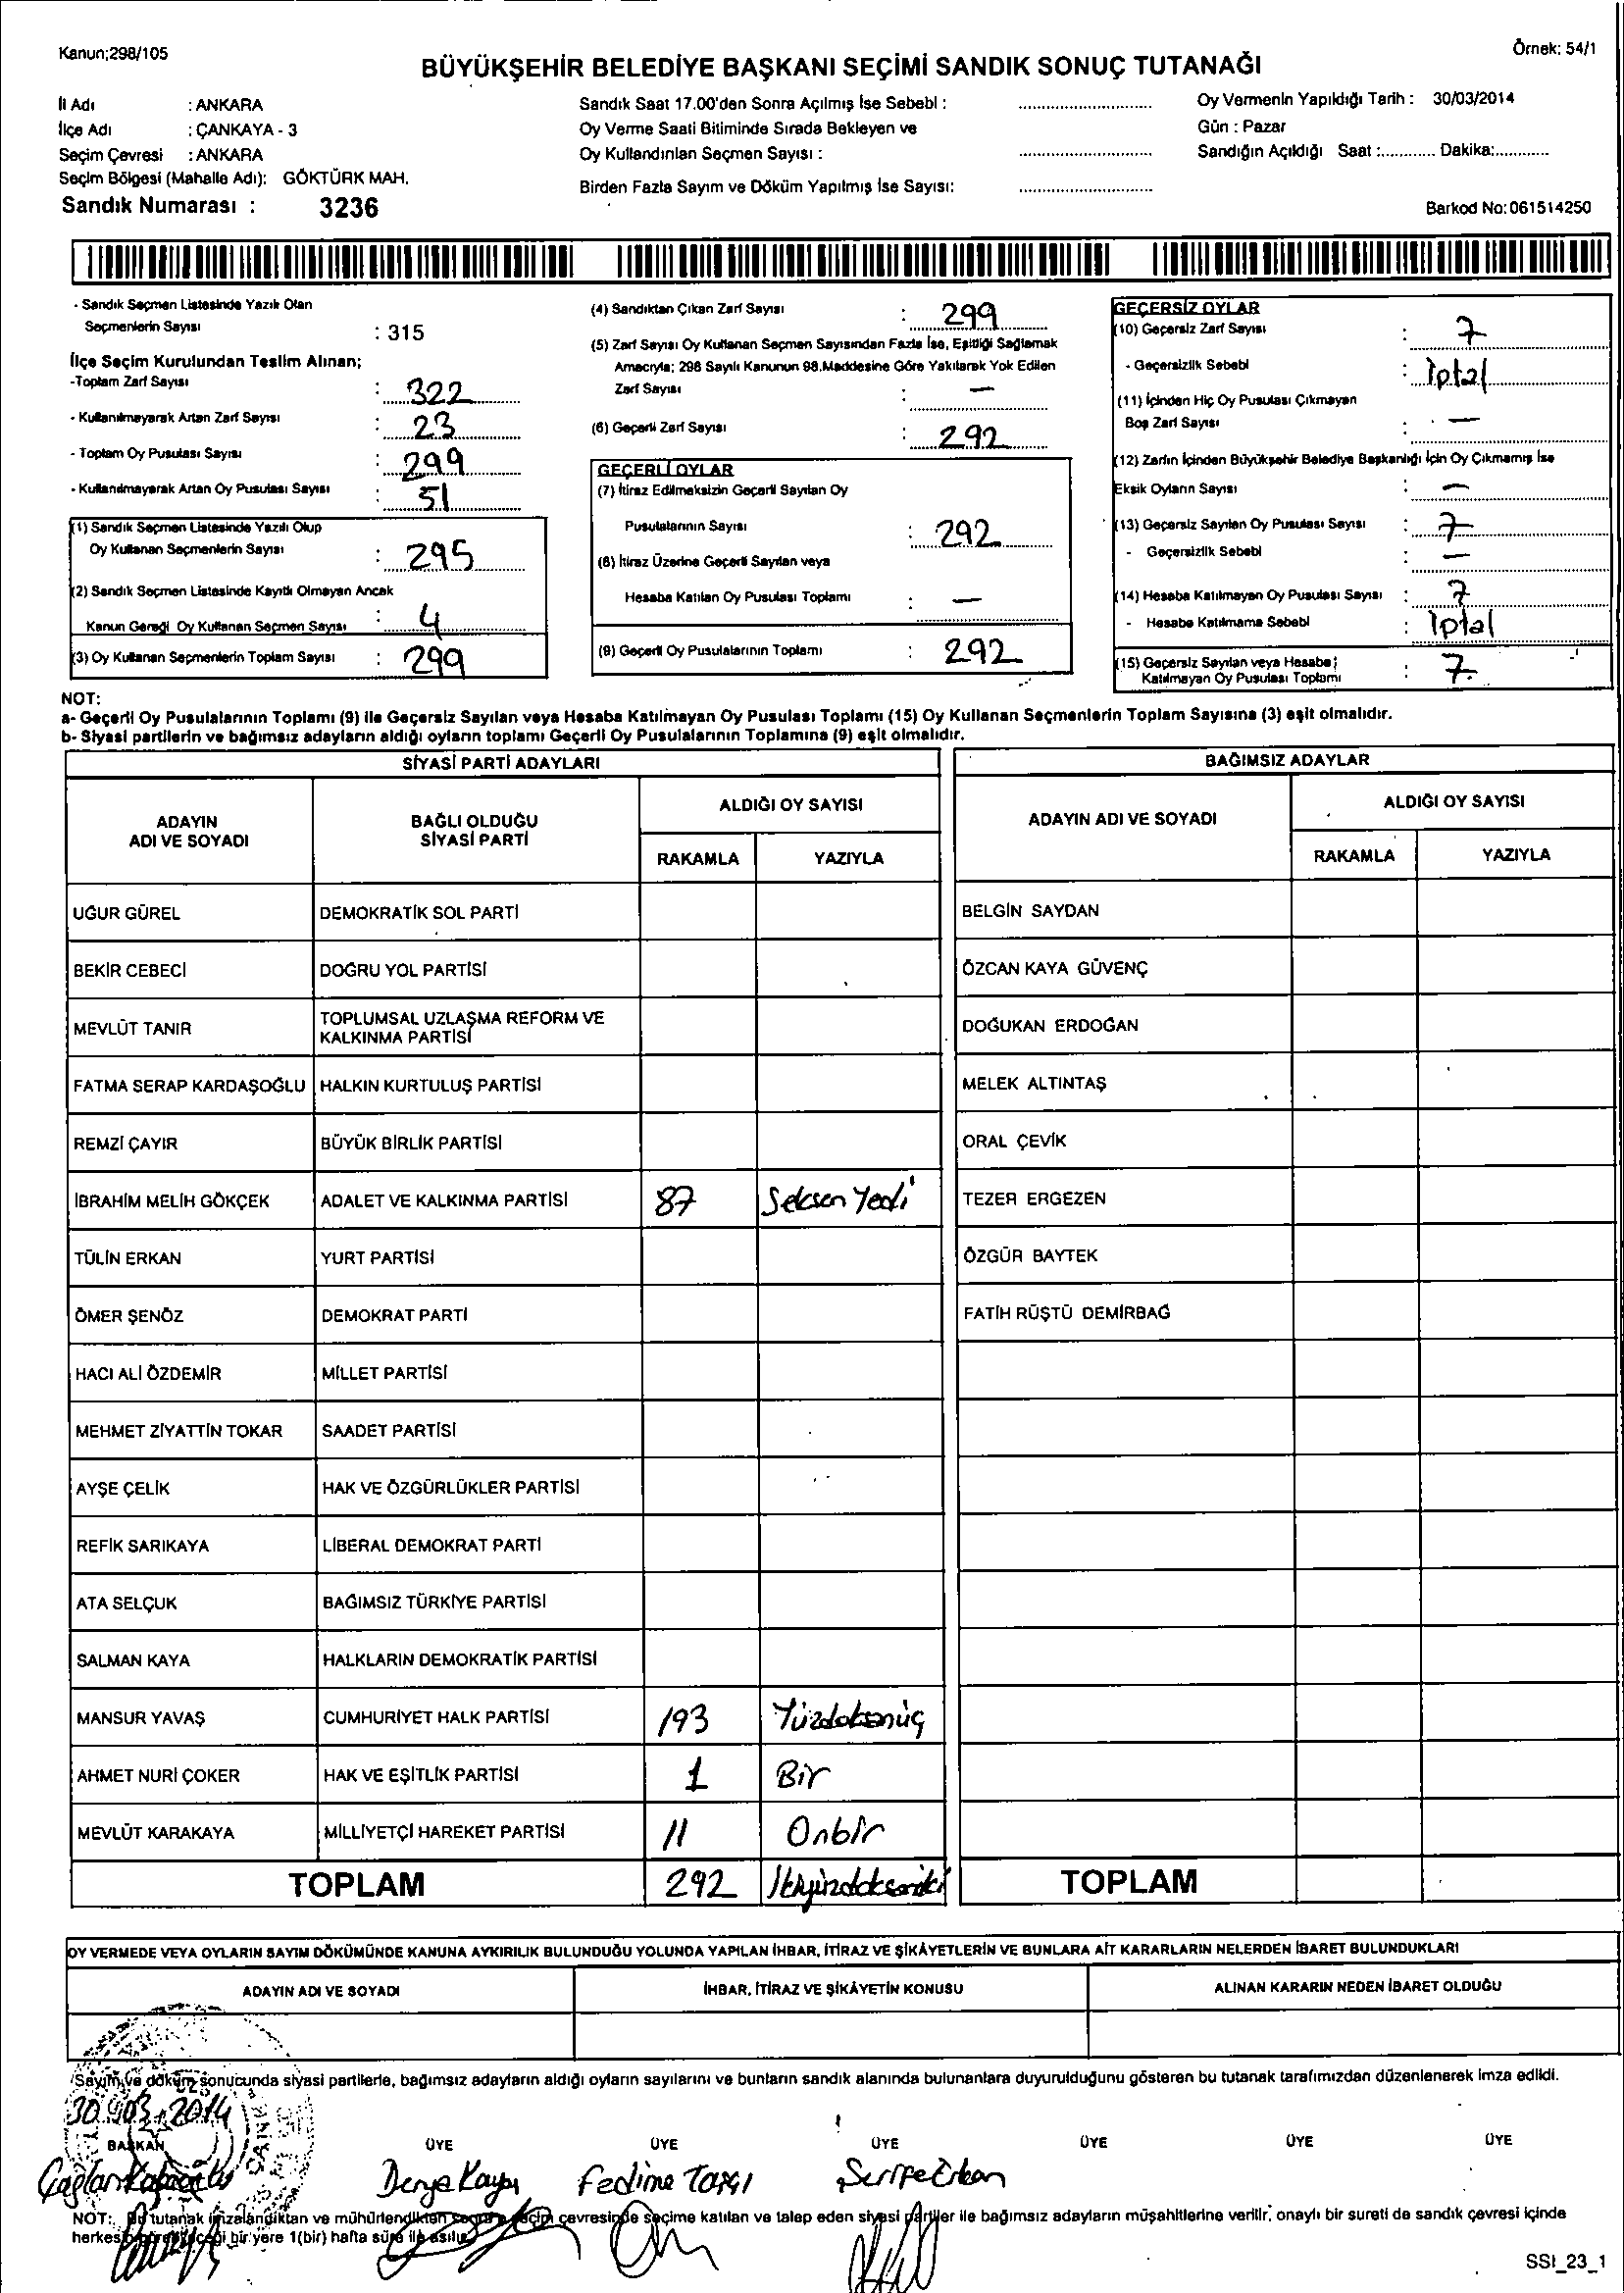 Kanun;298/105
Örnek: 54/1
BÜYÜKŞEHİR BELEDİYE BAŞKANI SEÇİMİ SANDIK SONUÇ TUTANAĞI
İl Adı : ANKARA
İlçe Adı : ÇANKAYA - 3
Seçim Çevresi : ANKARA
Seçim Bölgesi (Mahalle Adı): GÖKTÜRK MAH.
Sandık Numarası : 3236
Sandık Saat 17.00'den Sonra Açılmış İse Sebebi :
Oy Verme Saati Bitiminde Sırada Bekleyen ve
Oy Kullandırılan Seçmen Sayısı :
Birden Fazla Sayım ve Döküm Yapılmış İse Sayısı:
Oy Vermenin Yapıldığı Tarih : 30/03/2014
Gün : Pazar
Sandığın Açıldığı Saat :............ Dakika:............
Barkod No: 061514250
- Sandık Seçmen Listesinde Yazılı Olan
Seçmenlerin Sayısı : 315
İlçe Seçim Kurulundan Teslim Alınan;
-Toplam Zarf Sayısı : 322
- Kullanılmayarak Artan Zarf Sayısı : 23
- Toplam Oy Pusulası Sayısı : 299
- Kullanılmayarak Artan Oy Pusulası Sayısı : 51
(1) Sandık Seçmen Listesinde Yazılı Olup
Oy Kullanan Seçmenlerin Sayısı : 295
(2) Sandık Seçmen Listesinde Kayıtlı Olmayan Ancak
Kanun Gereği Oy Kullanan Seçmen Sayısı : 4
(3) Oy Kullanan Seçmenlerin Toplam Sayısı : 299
(4) Sandıktan Çıkan Zarf Sayısı : 299
(5) Zarf Sayısı Oy Kullanan Seçmen Sayısından Fazla İse, Eşitliği Sağlamak
Amacıyla; 298 Sayılı Kanunun 98.Maddesine Göre Yakılarak Yok Edilen
Zarf Sayısı : —
(6) Geçerli Zarf Sayısı : 292
GEÇERLİ OYLAR
(7) İtiraz Edilmeksizin Geçerli Sayılan Oy
Pusulalarının Sayısı : 292
(8) İtiraz Üzerine Geçerli Sayılan veya
Hesaba Katılan Oy Pusulası Toplamı : —
(9) Geçerli Oy Pusulalarının Toplamı : 292
GEÇERSİZ OYLAR
(10) Geçersiz Zarf Sayısı : 7
- Geçersizlik Sebebi : İptal
(11) İçinden Hiç Oy Pusulası Çıkmayan
Boş Zarf Sayısı : —
(12) Zarfın İçinden Büyükşehir Belediye Başkanlığı İçin Oy Çıkmamış İse
Eksik Oyların Sayısı : —
(13) Geçersiz Sayılan Oy Pusulası Sayısı : 7
- Geçersizlik Sebebi : —
(14) Hesaba Katılmayan Oy Pusulası Sayısı : 7
- Hesaba Katılmama Sebebi : İptal
(15) Geçersiz Sayılan veya Hesaba
Katılmayan Oy Pusulası Toplamı : 7
NOT:
a- Geçerli Oy Pusulalarının Toplamı (9) ile Geçersiz Sayılan veya Hesaba Katılmayan Oy Pusulası Toplamı (15) Oy Kullanan Seçmenlerin Toplam Sayısına (3) eşit olmalıdır.
b- Siyasi partilerin ve bağımsız adayların aldığı oyların toplamı Geçerli Oy Pusulalarının Toplamına (9) eşit olmalıdır.
SİYASİ PARTİ ADAYLARI
ADAYIN ADI VE SOYADI
BAĞLI OLDUĞU SİYASİ PARTİ
ALDIĞI OY SAYISI
RAKAMLA YAZIYLA
UĞUR GÜREL DEMOKRATİK SOL PARTİ
BEKİR CEBECİ DOĞRU YOL PARTİSİ
MEVLÜT TANIR TOPLUMSAL UZLAŞMA REFORM VE
KALKINMA PARTİSİ
FATMA SERAP KARDAŞOĞLU HALKIN KURTULUŞ PARTİSİ
REMZİ ÇAYIR BÜYÜK BİRLİK PARTİSİ
İBRAHİM MELİH GÖKÇEK ADALET VE KALKINMA PARTİSİ 87 Seksen Yedi
TÜLİN ERKAN YURT PARTİSİ
ÖMER ŞENÖZ DEMOKRAT PARTİ
HACI ALİ ÖZDEMİR MİLLET PARTİSİ
MEHMET ZİYATTİN TOKAR SAADET PARTİSİ
AYŞE ÇELİK HAK VE ÖZGÜRLÜKLER PARTİSİ
REFİK SARIKAYA LİBERAL DEMOKRAT PARTİ
ATA SELÇUK BAĞIMSIZ TÜRKİYE PARTİSİ
SALMAN KAYA HALKLARIN DEMOKRATİK PARTİSİ
MANSUR YAVAŞ CUMHURİYET HALK PARTİSİ 193 Yüzdoksanüç
AHMET NURİ ÇOKER HAK VE EŞİTLİK PARTİSİ 1 Bir
MEVLÜT KARAKAYA MİLLİYETÇİ HAREKET PARTİSİ 11 Onbir
TOPLAM 292 İkiyüzdoksaniki
BAĞIMSIZ ADAYLAR
ADAYIN ADI VE SOYADI
ALDIĞI OY SAYISI
RAKAMLA YAZIYLA
BELGİN SAYDAN
ÖZCAN KAYA GÜVENÇ
DOĞUKAN ERDOĞAN
MELEK ALTINTAŞ
ORAL ÇEVİK
TEZER ERGEZEN
ÖZGÜR BAYTEK
FATİH RÜŞTÜ DEMİRBAĞ
TOPLAM
OY VERMEDE VEYA OYLARIN SAYIM DÖKÜMÜNDE KANUNA AYKIRILIK BULUNDUĞU YOLUNDA YAPILAN İHBAR, İTİRAZ VE ŞİKÂYETLERİN VE BUNLARA AİT KARARLARIN NELERDEN İBARET BULUNDUKLARI
ADAYIN ADI VE SOYADI İHBAR, İTİRAZ VE ŞİKÂYETİN KONUSU ALINAN KARARIN NEDEN İBARET OLDUĞU
Sayım ve döküm sonucunda siyasi partilerle, bağımsız adayların aldığı oyların sayılarını ve bunların sandık alanında bulunanlara duyurulduğunu gösteren bu tutanak tarafımızdan düzenlenerek imza edildi.
30.03.2014
BAŞKAN ÜYE ÜYE ÜYE ÜYE ÜYE ÜYE
Çağlar Derya Fedime Şerife Erkan
NOT: Bu tutanak imzalandıktan ve mühürlendikten sonra seçim çevresinde seçime katılan ve talep eden siyasi partiler ile bağımsız adayların müşahitlerine verilir, onaylı bir sureti de sandık çevresi içinde
herkesin görebileceği bir yere 1(bir) hafta süre ile asılır.
SSI_23_1